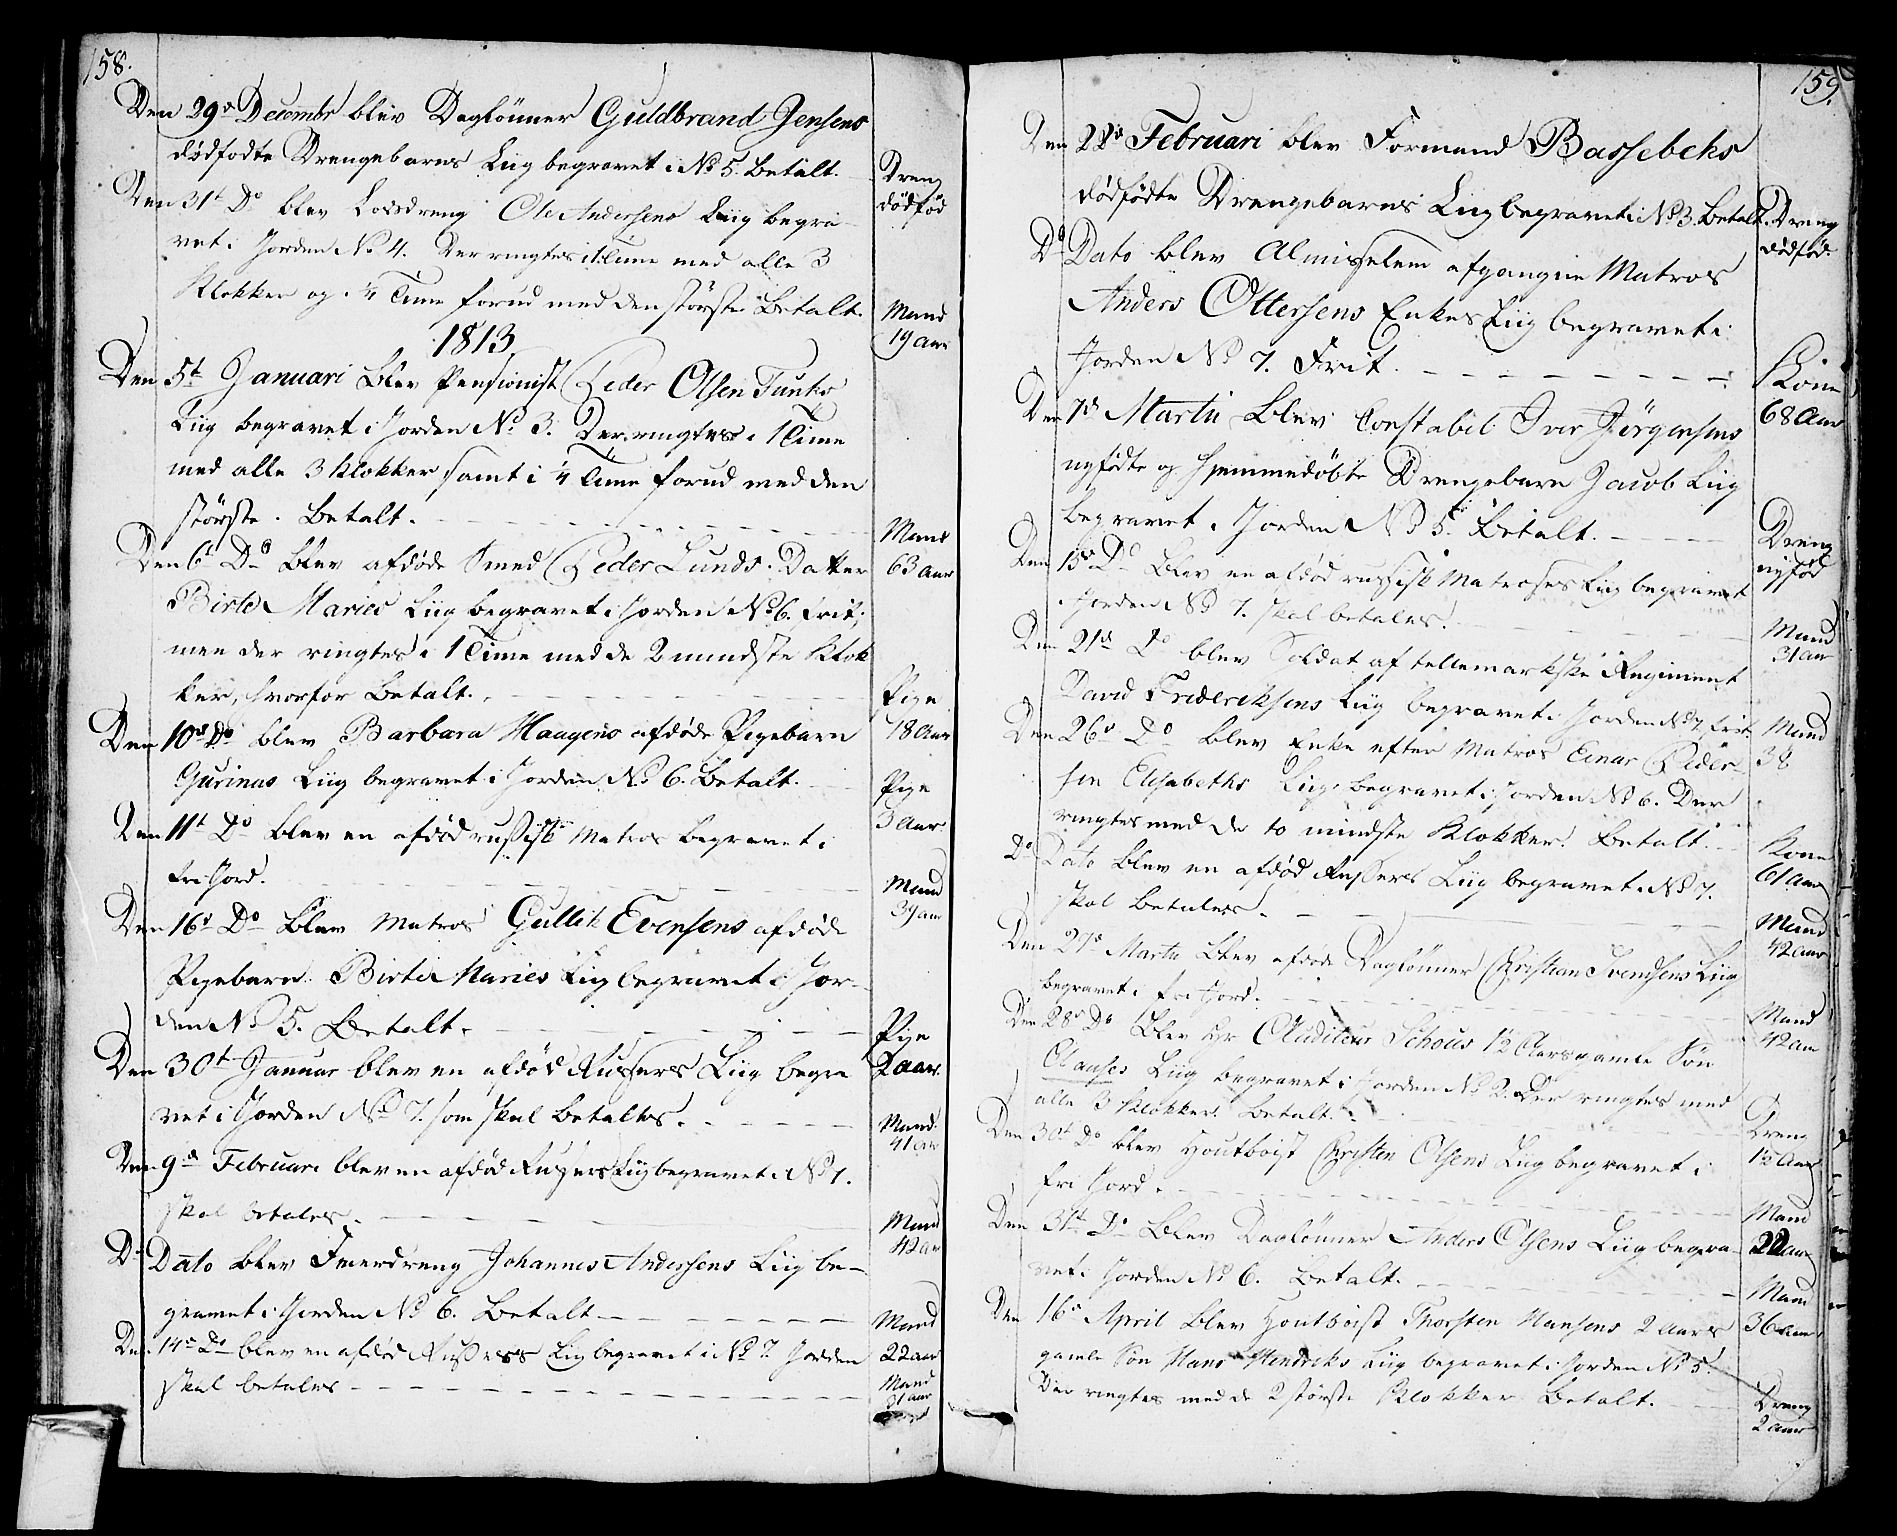 158.
Den 29de Decembr blev Daglönner Guldbrand Jensens
dödfödte Drengebarns Liig begravet i No 5. Betalt.
Dreng
dödfød
Den 31t Do blev Losdreng Ole Andersens Liig begra-
vet i Jorden No 4. Der ringtes i 1 Time med alle 3
Klokker og i 1/4 Time forud med den störste. Betalt.
Mand
19 aar
1813
Den 5t Januari blev Pensionist Peder Olsen Tunks
Liig begravet i Jorden No 3. Der ringtes i 1 Time
med alle 3 Klokker, samt i 1/4 Time forud med den
störste. Betalt.
Mand
63 aar
Den 6t Do blev afdöde Smed Peder Lunds Datter
Birte Maries Liig begravet i Jorden No 6. frit;
men der ringtes i 1 Time med de 2 mindste Klok
ker, hvorfor Betalt.
Pige
18 Aar
Den 10de Do blev Barbara Haagens afdöde Pigebarn
Gurinas Liig begravet i Jorden No 6. Betalt.
Pige
3 Aar
Den 11t Do blev en afdöd russisk Matros begravet i
fri Jord.
Mand
39 aar
Den 16d Do blev Matros Gullik Evensens afdöde
Pigebarn Birte Maries Liig begravet i Jor-
den No 5. Betalt.
Pige
2 aar
Den 30t Januar blev en afdöd Russers Liig begra
vet i Jorden No 7. som skal betales.
Mand
41 aar
Den 9de Februari blev en afdöd Russers Liig begravet i No 7.
skal betales.
Mand
42 aar
Do Dato blev Johannes Andersens Liig be-
gravet i Jorden No 6. Betalt
Mand
22 aar
Den 14de Do blev en afdöd Russers Liig begravet i No 7. Jorden
skal betales
Mand
31 aar
159.
Den 22de Februari blev Formand Bassebeks
dödfödte Drengebarns Liig begravet i No 3. Betalt.
Dreng
dödföd.
Do Dato blev Almisselem afgangne Matros
Anders Ottersens Enkes Liig begravet i
Jorden No 7. Frit.
Kone
68 Aar
Den 7de Martii blev Constabel Iver Jörgensens
nyfödte og hjemmedöbte Drengebarn Jacob Liig
begravet i Jorden No 5. Betalt.
Dreng
nyföd
Den 15de Do blev en afdöd russisk Matroses Liig begravet
i Jorden No 7. skal betales.
Mand
31 aar
Den 21de Do blev Soldat af tellemarkske Regiment
David Frideriksens Liig begravet i Jorden No 7. frit
Mand
38
Den 26de Do blev Enke efter Matros Einar Peder-
sen Elisabeths Liig begravet i Jorden No 6. Der
ringtes med de to mindste Klokker. Betalt.
Kone
61 aar
Do Dato blev en afdöd Russers Liig begravet i No 7.
skal betales.
Mand
42 aar
Den 27de Martii blev afdöde Daglönner Christian Svendsens Liig
begravet i fri Jord.
Mand
42 aar
Den 28de Do blev Hr Auditeur Schous 1½ Aars gamle Sön
Clauses Liig begravet i Jorden No 2. Der ringtes med
alle 3 Klokker. Betalt.
Dreng
1½ Aar
Den 30t Do blev Houtboist Christen Olsens Liig begravet i
fri Jord.
Mand
22 aar
Den 31t Do blev Daglönner Anders Olsens Liig begra-
vet i Jorden No 6. Betalt.
Mand
36 aar
Den 16de April blev Houtboist Thorsten Hansens 2 Aars
gamle Sön Hans Hendriks Liig begravet i Jorden No 5.
Der ringtes med de 2 störste Klokker. Betalt.
Dreng
2 aar